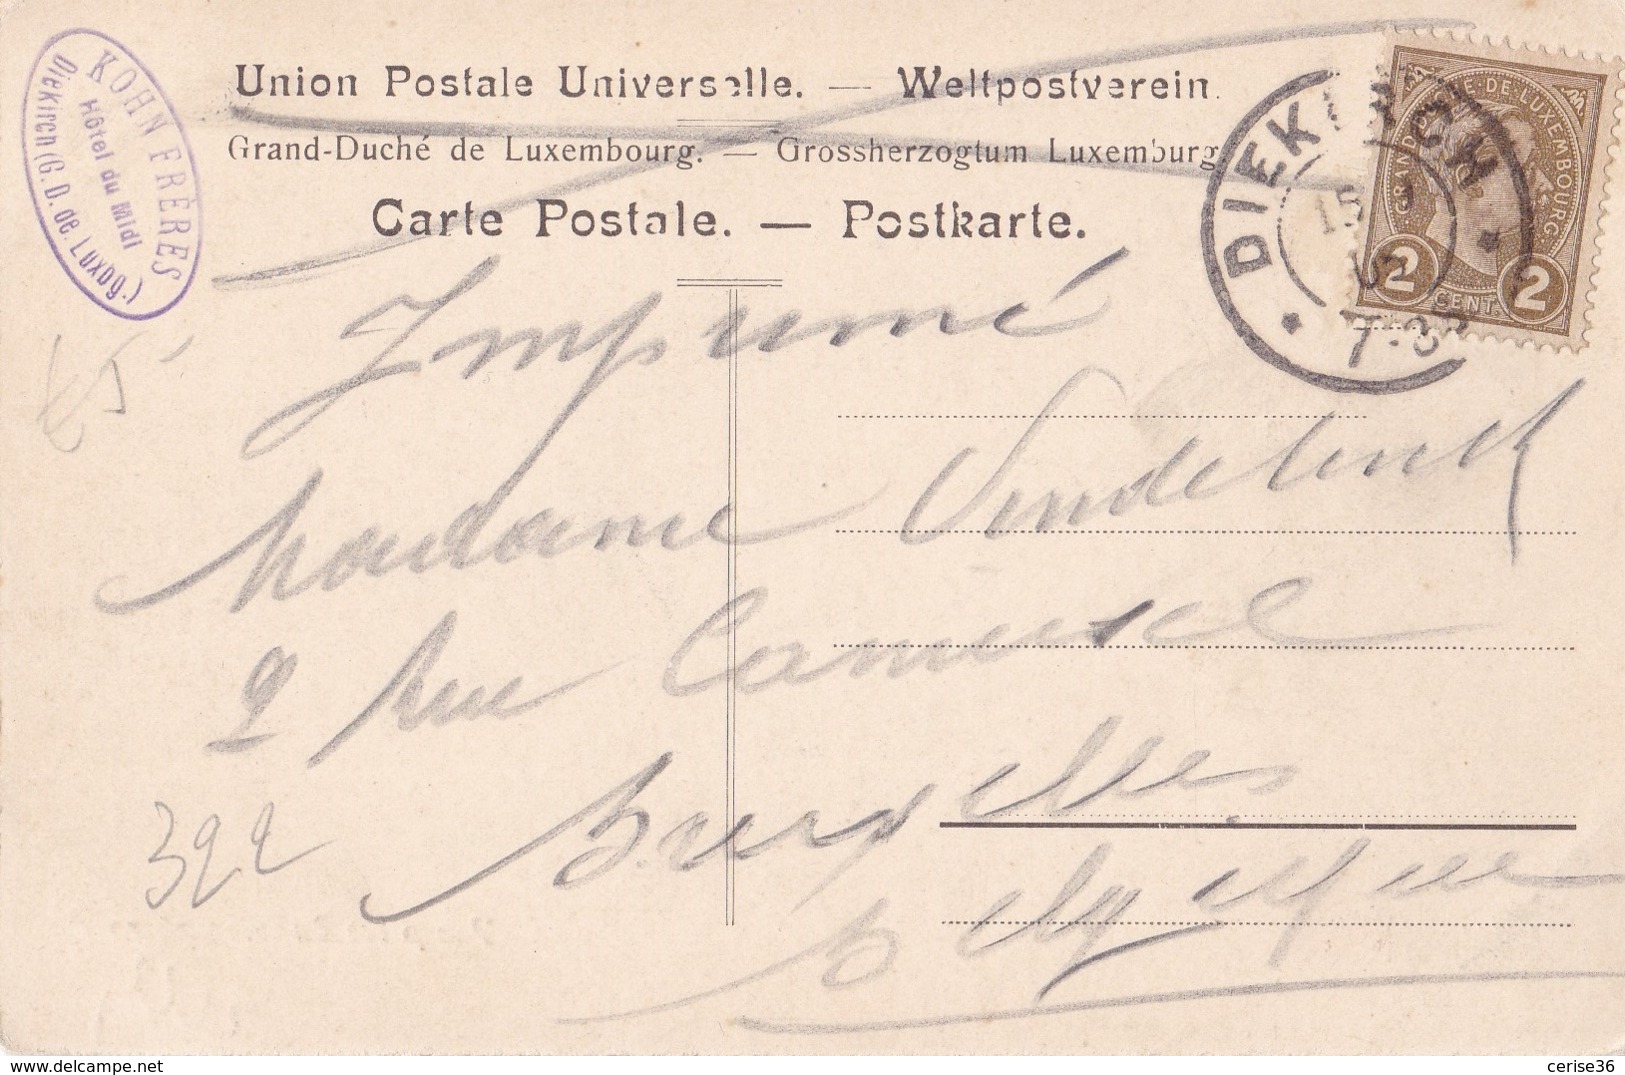 KOHN FRÈRES
Hôtel du Midi
Diekirch (G. D. de Luxbg.)
Union Postale Universelle. — Weltpostverein.
Grand-Duché de Luxembourg. — Grossherzogtum Luxemburg
Carte Postale. — Postkarte.
DIEKIRCH
15
07
7-8
GRAND DUCHE DE LUXEMBOURG
2 CENT. 2
Imprimé
Madame
2 Rue
Bruxelles
Belgique
322
cerise36